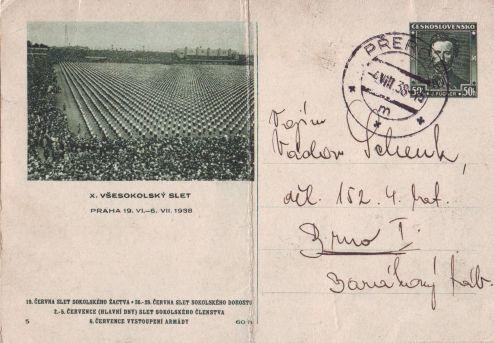 X. VŠESOKOLSKÝ SLET
PRAHA 19. VI.–6. VII. 1938
19. ČERVNA SLET SOKOLSKÉHO ŽACTVA • 26.-29. ČERVNA SLET SOKOLSKÉHO DOROSTU
2.-5. ČERVENCE (HLAVNÍ DNY) SLET SOKOLSKÉHO ČLENSTVA
6. ČERVENCE VYSTOUPENÍ ARMÁDY
5
60 h
ČESKOSLOVENSKO
50h
50h
PŘER
4.VIII.38
m
Vojín
Václav Schenk,
děl. 152. 4. bat.
Brno I.